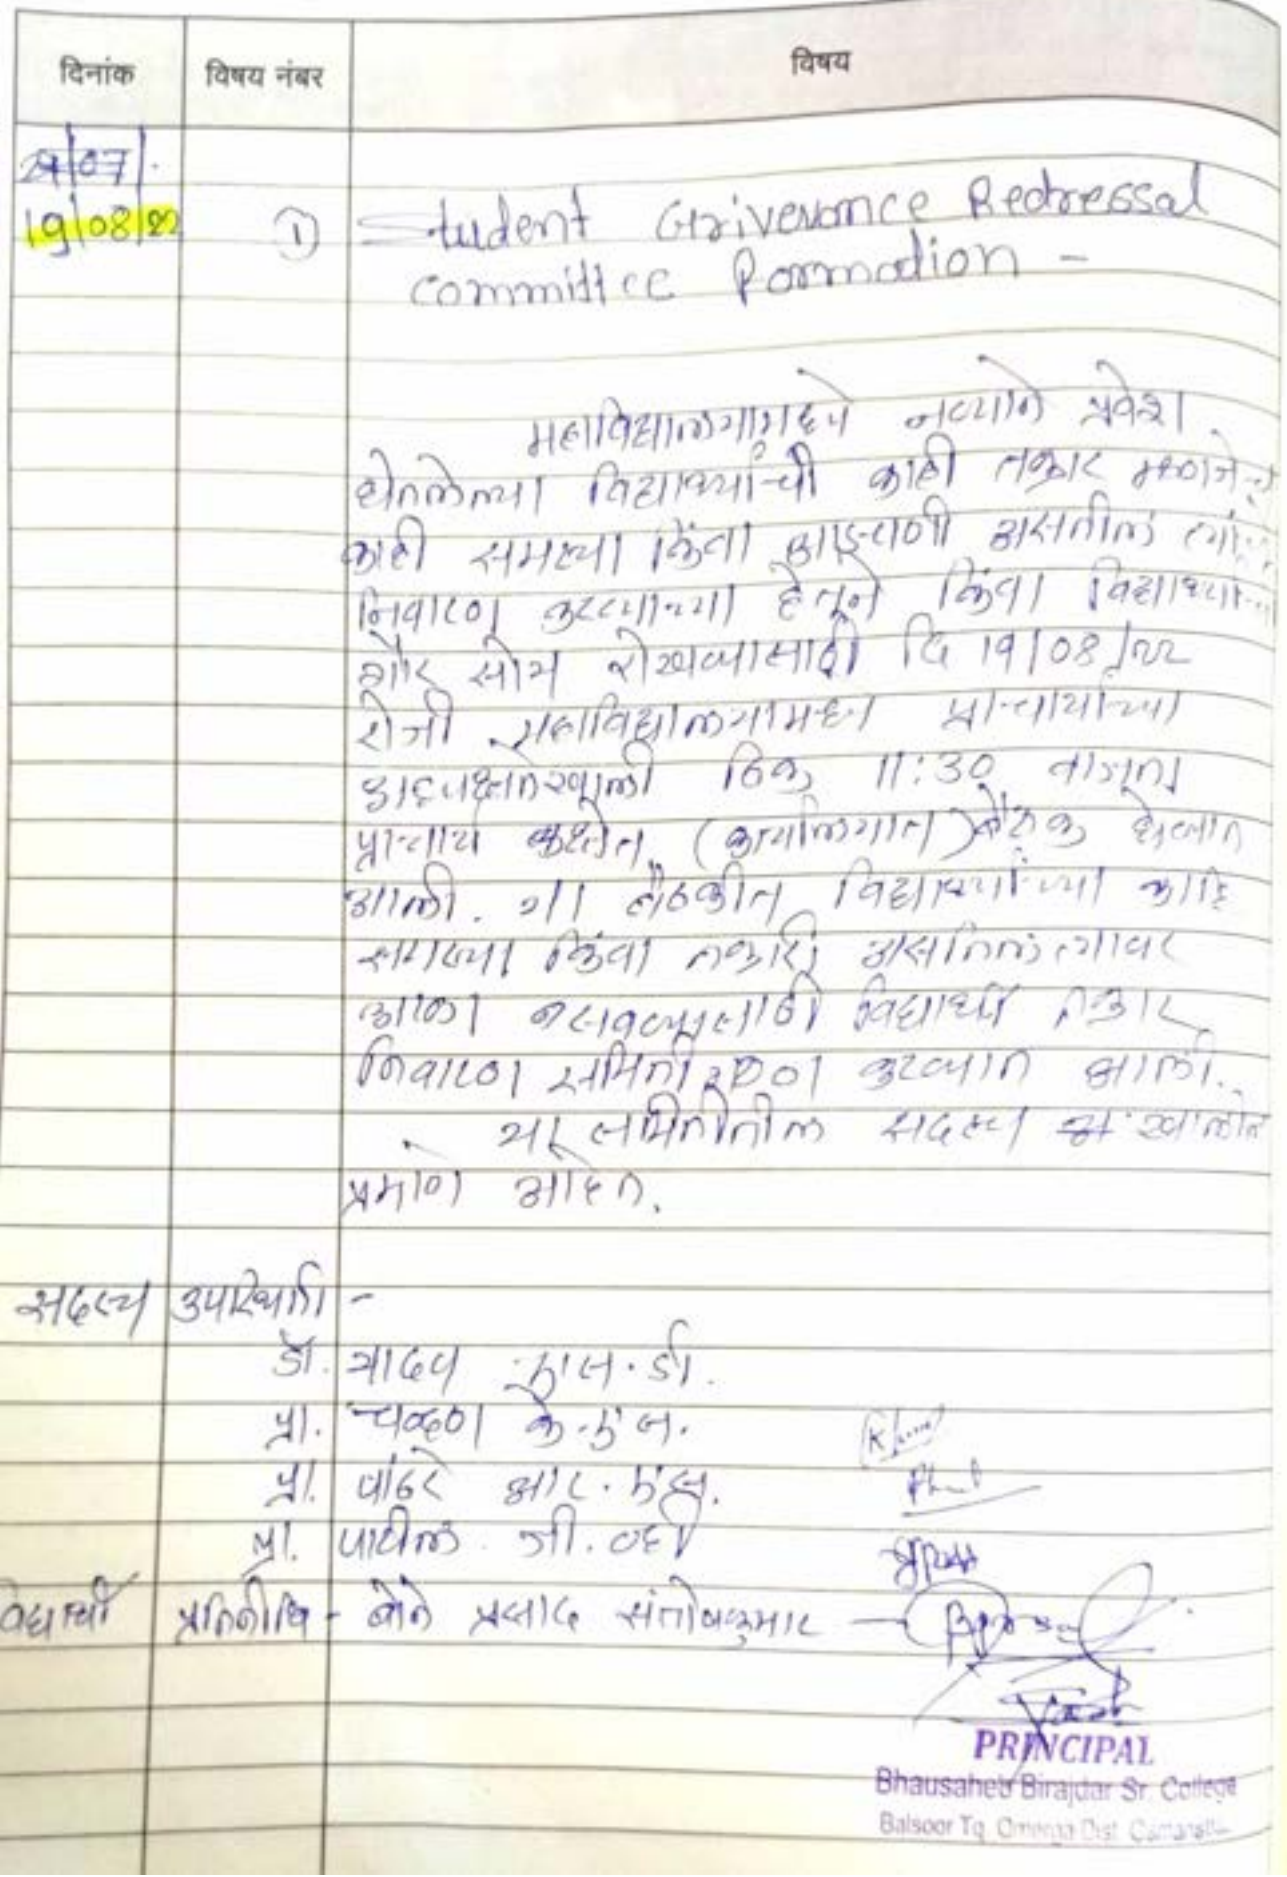 दिनांक विषय नंबर विषय
19/08/22 ① Student Griverance Redressal
committee Formation -
महाविद्यालयामध्ये नव्याने प्रवेश
घेतलेल्या विद्यार्थ्यांची काही तक्रार म्हणजेच
काही समस्या किंवा अडचणी असतील
निवारण करण्याच्या हेतूने किंवा
गैर सोय रोखण्यासाठी दि 19/08/22
रोजी महाविद्यालयामध्ये प्राचार्यांच्या
अध्यक्षतेखाली ठिक 11:30 वाजता
प्राचार्य कक्षेत (कार्यालयात) बैठक घेण्यात
आली. या बैठकीत विद्यार्थ्यांच्या काही
समस्या किंवा तक्रारी असतील त्यावर
आळा बसवण्यासाठी विद्यार्थी तक्रार
निवारण समिती गठण करण्यात आली.
या समितीतील सदस्य खालील
प्रमाणे आहेत.
सदस्य उपस्थिती -
डॉ. यादव एस. डी.
प्रा. चव्हाण के. एन.
प्रा. पांढरे आर. एस.
प्रा. पाटील जी. व्ही
विद्यार्थी प्रतिनीधि - बोने प्रसाद संतोषकुमार -
PRINCIPAL
Bhausaheb Birajdar Sr. College
Balsoor Tq. Omerga Dist.